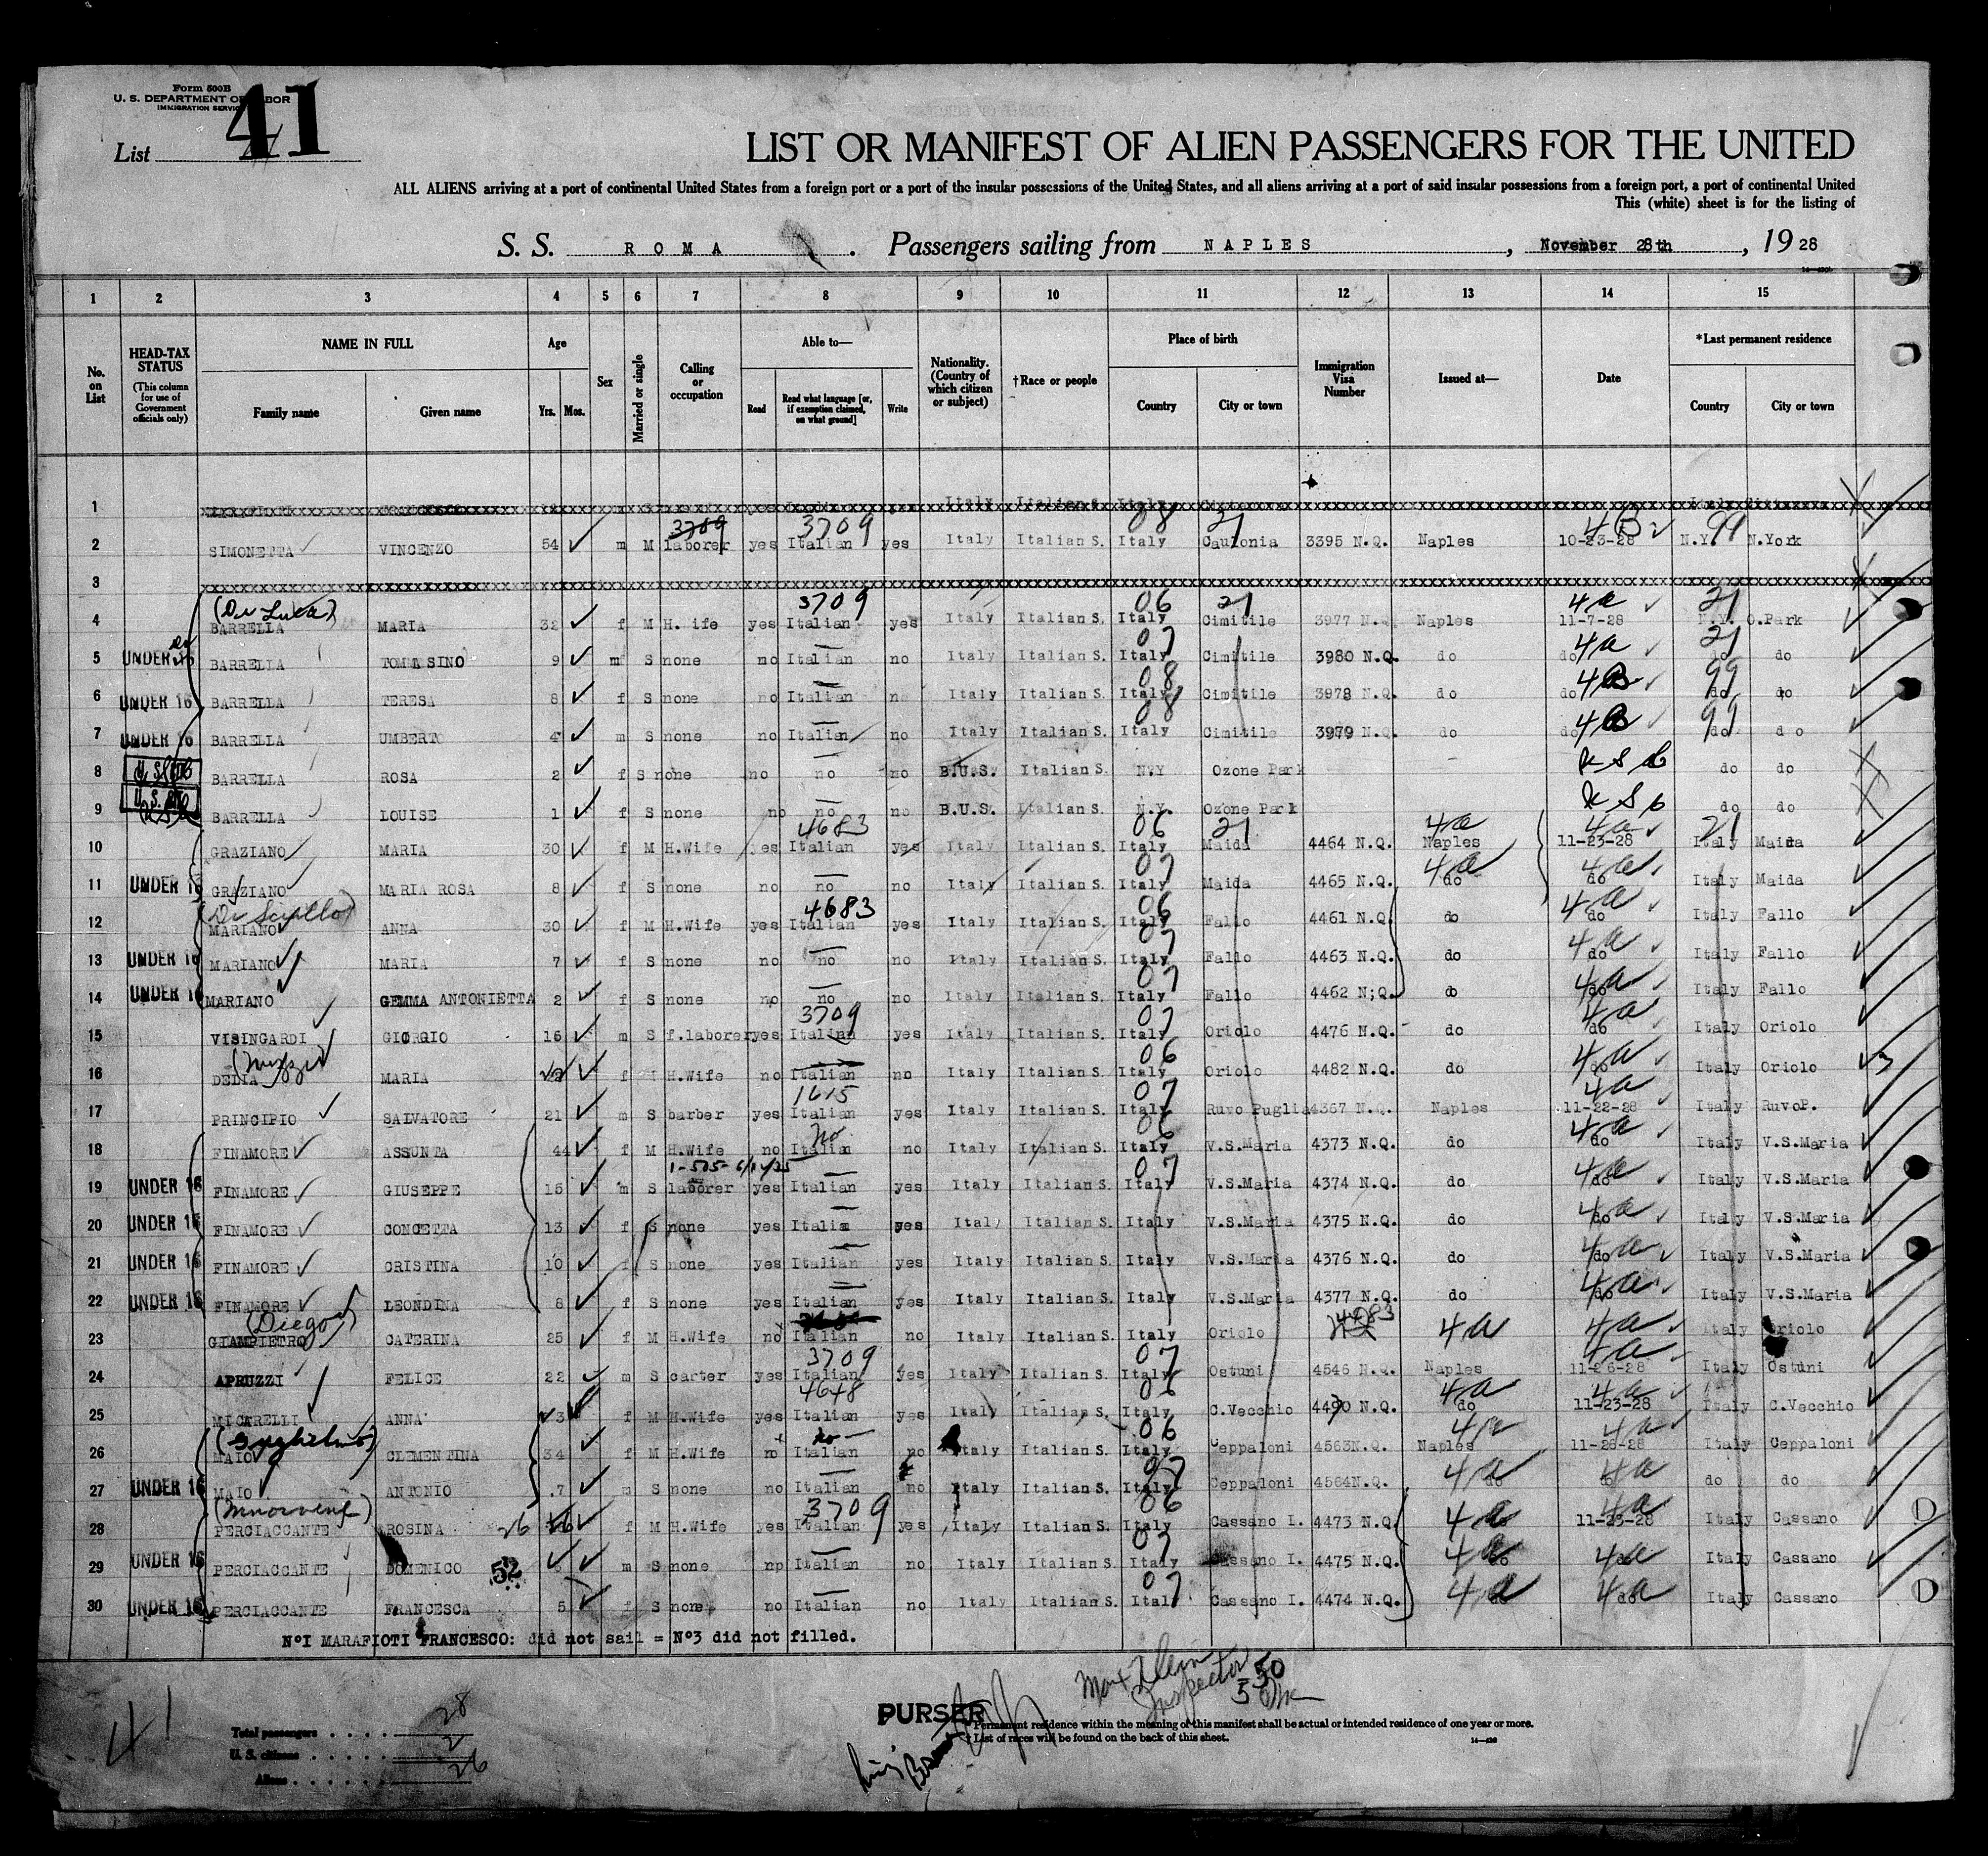 Form 500B
U. S. DEPARTMENT OF LABOR
IMMIGRATION SERVICE
List 41
LIST OR MANIFEST OF ALIEN PASSENGERS FOR THE UNITED
ALL ALIENS arriving at a port of continental United States from a foreign port or a port of the insular possessions of the United States, and all aliens arriving at a port of said insular possessions from a foreign port, a port of continental United
This (white) sheet is for the listing of
S. S. ROMA. Passengers sailing from NAPLES, November 28th, 1928
1 2 3 4 5 6 7 8 9 10 11 12 13 14 15
No. on List
HEAD-TAX STATUS (This column for use of Government officials only)
NAME IN FULL Family name Given name
Age Yrs. Mos.
Sex
Married or single
Calling or occupation
Able to— Read Read what language [or, if exemption claimed, on what ground] Write
Nationality. (Country of which citizen or subject)
†Race or people
Place of birth Country City or town
Immigration Visa Number
Issued at—
Date
*Last permanent residence Country City or town
1
2 SIMONETTA VINCENZO 54 m M laborer 3709 yes Italian 3709 yes Italy Italian S. Italy Caulonia 3395 N.Q. Naples 10-23-28 4B N.Y. 99 N.York
3
4 (De Luca) BARRELLA MARIA 32 f M H. ife yes Italian 3709 yes Italy Italian S. Italy 06 Cimitile 21 3977 N.Q. Naples 11-7-28 4a N.Y. 21 O.Park
5 UNDER 16 BARRELLA TOMMASINO 9 m S none no Italian no Italy Italian S. Italy 07 Cimitile 3980 N.Q. do do 4a do 21 do
6 UNDER 16 BARRELLA TERESA 8 f S none no Italian no Italy Italian S. Italy 08 Cimitile 3978 N.Q. do do 4B do 99 do
7 UNDER 16 BARRELLA UMBERTO 4 m S none no Italian no Italy Italian S. Italy 08 Cimitile 3979 N.Q. do do 4B do 99 do
8 BARRELLA ROSA 2 f S none no no no B.U.S. Italian S. N.Y Ozone Park do do
9 BARRELLA LOUISE 1 f S none no no no B.U.S. Italian S. N.Y. Ozone Park do do
10 GRAZIANO MARIA 30 f M H.Wife yes Italian 4683 yes Italy Italian S. Italy 06 Maida 21 4464 N.Q. Naples 4a 11-23-28 4a Italy 21 Maida
11 UNDER 16 GRAZIANO MARIA ROSA 8 f S none no no no Italy Italian S. Italy 07 Maida 4465 N.Q. do 4a do 4a Italy Maida
12 MARIANO ANNA 30 f M H.Wife yes Italian 4683 yes Italy Italian S. Italy 06 Fallo 4461 N.Q. do do 4a Italy Fallo
13 UNDER 16 MARIANO MARIA 7 f S none no no no Italy Italian S. Italy 07 Fallo 4463 N.Q. do do 4a Italy Fallo
14 UNDER 16 MARIANO GEMMA ANTONIETTA 2 f S none no no no Italy Italian S. Italy 07 Fallo 4462 N;Q. do do 4a Italy Fallo
15 VISINGARDI GIORGIO 16 m S f.laborer yes Italian 3709 yes Italy Italian S. Italy 07 Oriolo 4476 N.Q. do do 4a Italy Oriolo
16 DELIA MARIA f H.Wife no Italian no Italy Italian S. Italy 06 Oriolo 4482 N.Q. do do 4a Italy Oriolo
17 PRINCIPIO SALVATORE 21 m S barber yes Italian 1615 yes Italy Italian S. Italy 07 Ruvo Puglia 4367 N.Q. Naples 11-22-28 4a Italy RuvoP.
18 FINAMORE ASSUNTA 44 f M H.Wife no Italian no no Italy Italian S. Italy 06 V.S.Maria 4373 N.Q. do do 4a Italy V.S.Maria
19 UNDER 16 FINAMORE GIUSEPPE 15 m S laborer yes Italian yes Italy Italian S. Italy 07 V.S.Maria 4374 N.Q. do do 4a Italy V.S.Maria
20 UNDER 16 FINAMORE CONCETTA 13 f S none yes Italia yes Italy Italian S. Italy V.S.Maria 4375 N.Q. do do 4a Italy V.S.Maria
21 UNDER 16 FINAMORE CRISTINA 10 f S none yes Italian yes Italy Italian S. Italy V.S.Maria 4376 N.Q. do do 4a Italy V.S.Maria
22 UNDER 16 FINAMORE LEONDINA 8 f S none yes Italian yes Italy Italian S. Italy V.S.Maria 4377 N.Q. do do 4a Italy V.S.Maria
23 (Diego) GIAMPIETRO CATERINA 25 f M H.Wife no Italian no Italy Italian S. Italy Oriolo 4a 4a Italy Oriolo
24 APRUZZI FELICE 22 m S carter yes Italian 3709 yes Italy Italian S. Italy 07 Ostuni 4546 N.Q. Naples 11-26-28 4a Italy Ostuni
25 MICARELLI ANNA f M H.Wife yes Italian 4648 yes Italy Italian S. Italy 06 C.Vecchio 4490 N.Q. do 4a 11-23-28 4a Italy C.Vecchio
26 (Guglielmo) MAIO CLEMENTINA 34 f M H.Wife no Italian no no Italy Italian S. Italy 06 Ceppaloni 4563N.Q. Naples 4a 11-26-28 4a Italy Ceppaloni
27 UNDER 16 MAIO ANTONIO 7 m S none no Italian no Italy Italian S. Italy 07 Ceppaloni 4564N.Q. do 4a 4a do do
28 PERCIACCANTE ROSINA 26 f M H.Wife yes Italian 3709 yes Italy Italian S. Italy 06 Cassano I. 4473 N.Q. 4a 11-23-28 4a Italy Cassano
29 UNDER 16 PERCIACCANTE DOMENICO 52 m S none no Italian no Italy Italian S. Italy 07 Cassano I. 4475 N.Q. 4a 4a Italy Cassano
30 UNDER 16 PERCIACCANTE FRANCESCA 5 f S none no Italian no Italy Italian S. Ital 07 Cassano I. 4474 N.Q. 4a do 4a Italy Cassano
N°I MARAFIOTI FRANCESCO: did not sail = N°3 did not filled.
Max Klein
Inspector
41
PURSER
Total passengers . . . . 28
U. S. citizens . . . . . 2
Aliens . . . . . . 26
* Permanent residence within the meaning of this manifest shall be actual or intended residence of one year or more.
† List of races will be found on the back of this sheet.